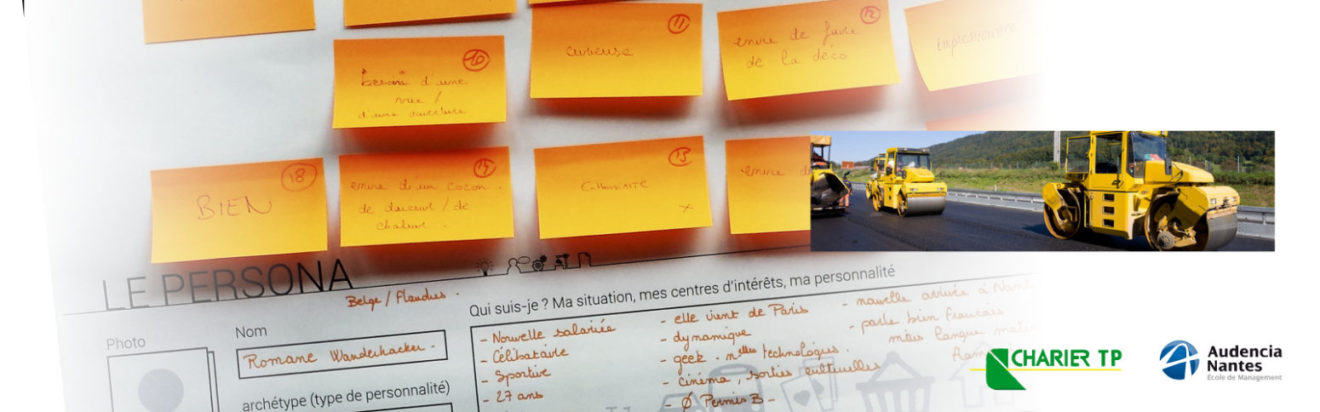 11
curieuse
12
envie de faire
de la déco
10
besoin d'une
d'une
18
BIEN
envie d'un cocon
de douceur / de
chaleur
13
x
envie
LE PERSONA
Belge / Flandres
Photo
Nom
Romane Wanderhacker
archétype (type de personnalité)
Qui suis-je ? Ma situation, mes centres d'intérêts, ma personnalité
- Nouvelle salariée
- Célibataire
- Sportive
- 27 ans
- elle vient de Paris
- dynamique
- geek - nlles technologies.
- cinéma, sorties culturelles
- Ø Permis B -
- nouvelle arrivée à
- parle bien français
mais langue
CHARIER TP
Audencia
Nantes
Ecole de Management